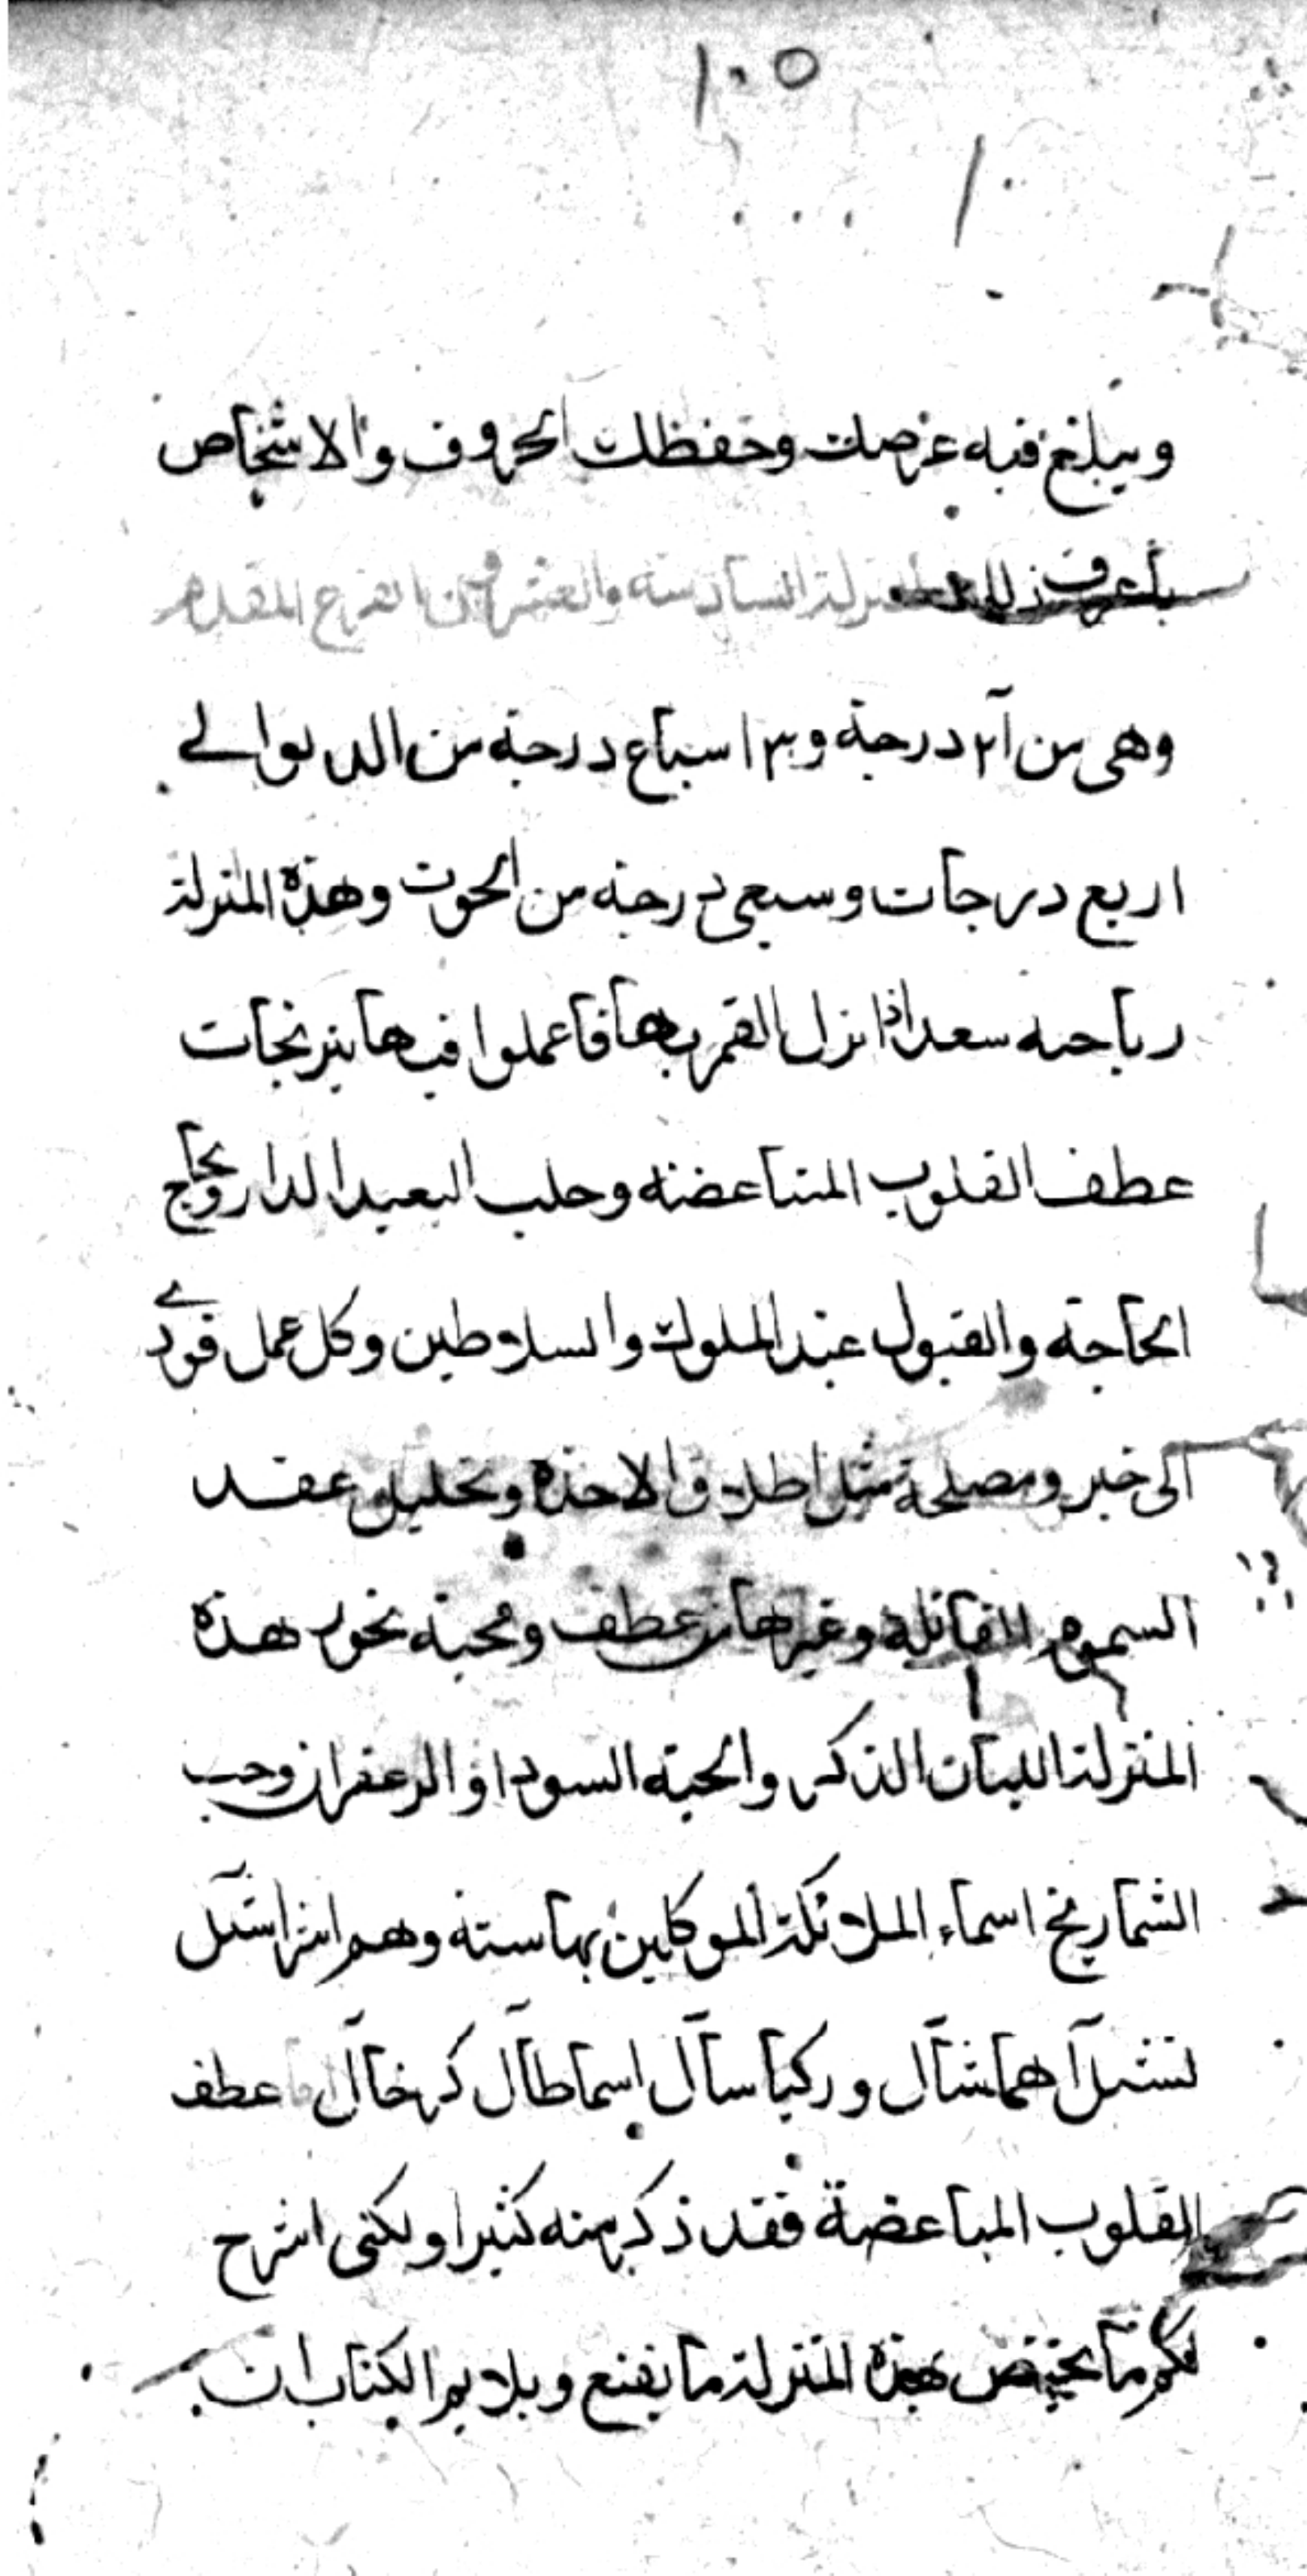 ١٠٥
ويبلغ فيه غرضك وحفظك الحروف والاشخاص
باعرف ذلك المنزلة السادسة والعشرون الفرع المقدم
وهى من ٢١ درجة و٣ اسباع درجة من الدلو الے
اربع درجات وسبعى درجة من الحوت وهذه المنزلة
رياحيه سعد اذا نزل القمر بها فاعملوا فيها نيرنجات
عطف القلوب المتباغضه وجلب البعيد الدار ونجاح
الحاجة والقبول عند الملوك والسلاطين وكل عمل قودے
الى خير ومصلحة مثل اطلاق الاخذه وتحليل عقد
السموم القاتلة وغيرها من عطف ومحبة بخور هذه
المنزلة اللبان الذكر والحبة السودا والزعفران وحب
الشماريخ اسماء الملائكة الموكلين بها ستة وهم اشراسيل
هماشآل وركياسآل اسماطآل كهخآل اما عطف
القلوب المباغضة فقد ذكر منه كثيرا ولكنى اشرح
لكم ما يختص بهذه المنزلة ما يقنع ويلايم الكتاب ان